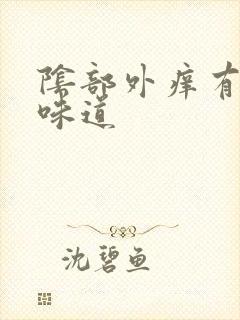 陰部外痒有
味道
沈碧鱼